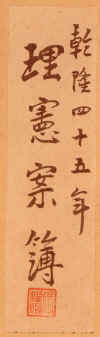 乾隆四十五年
理憲案簿